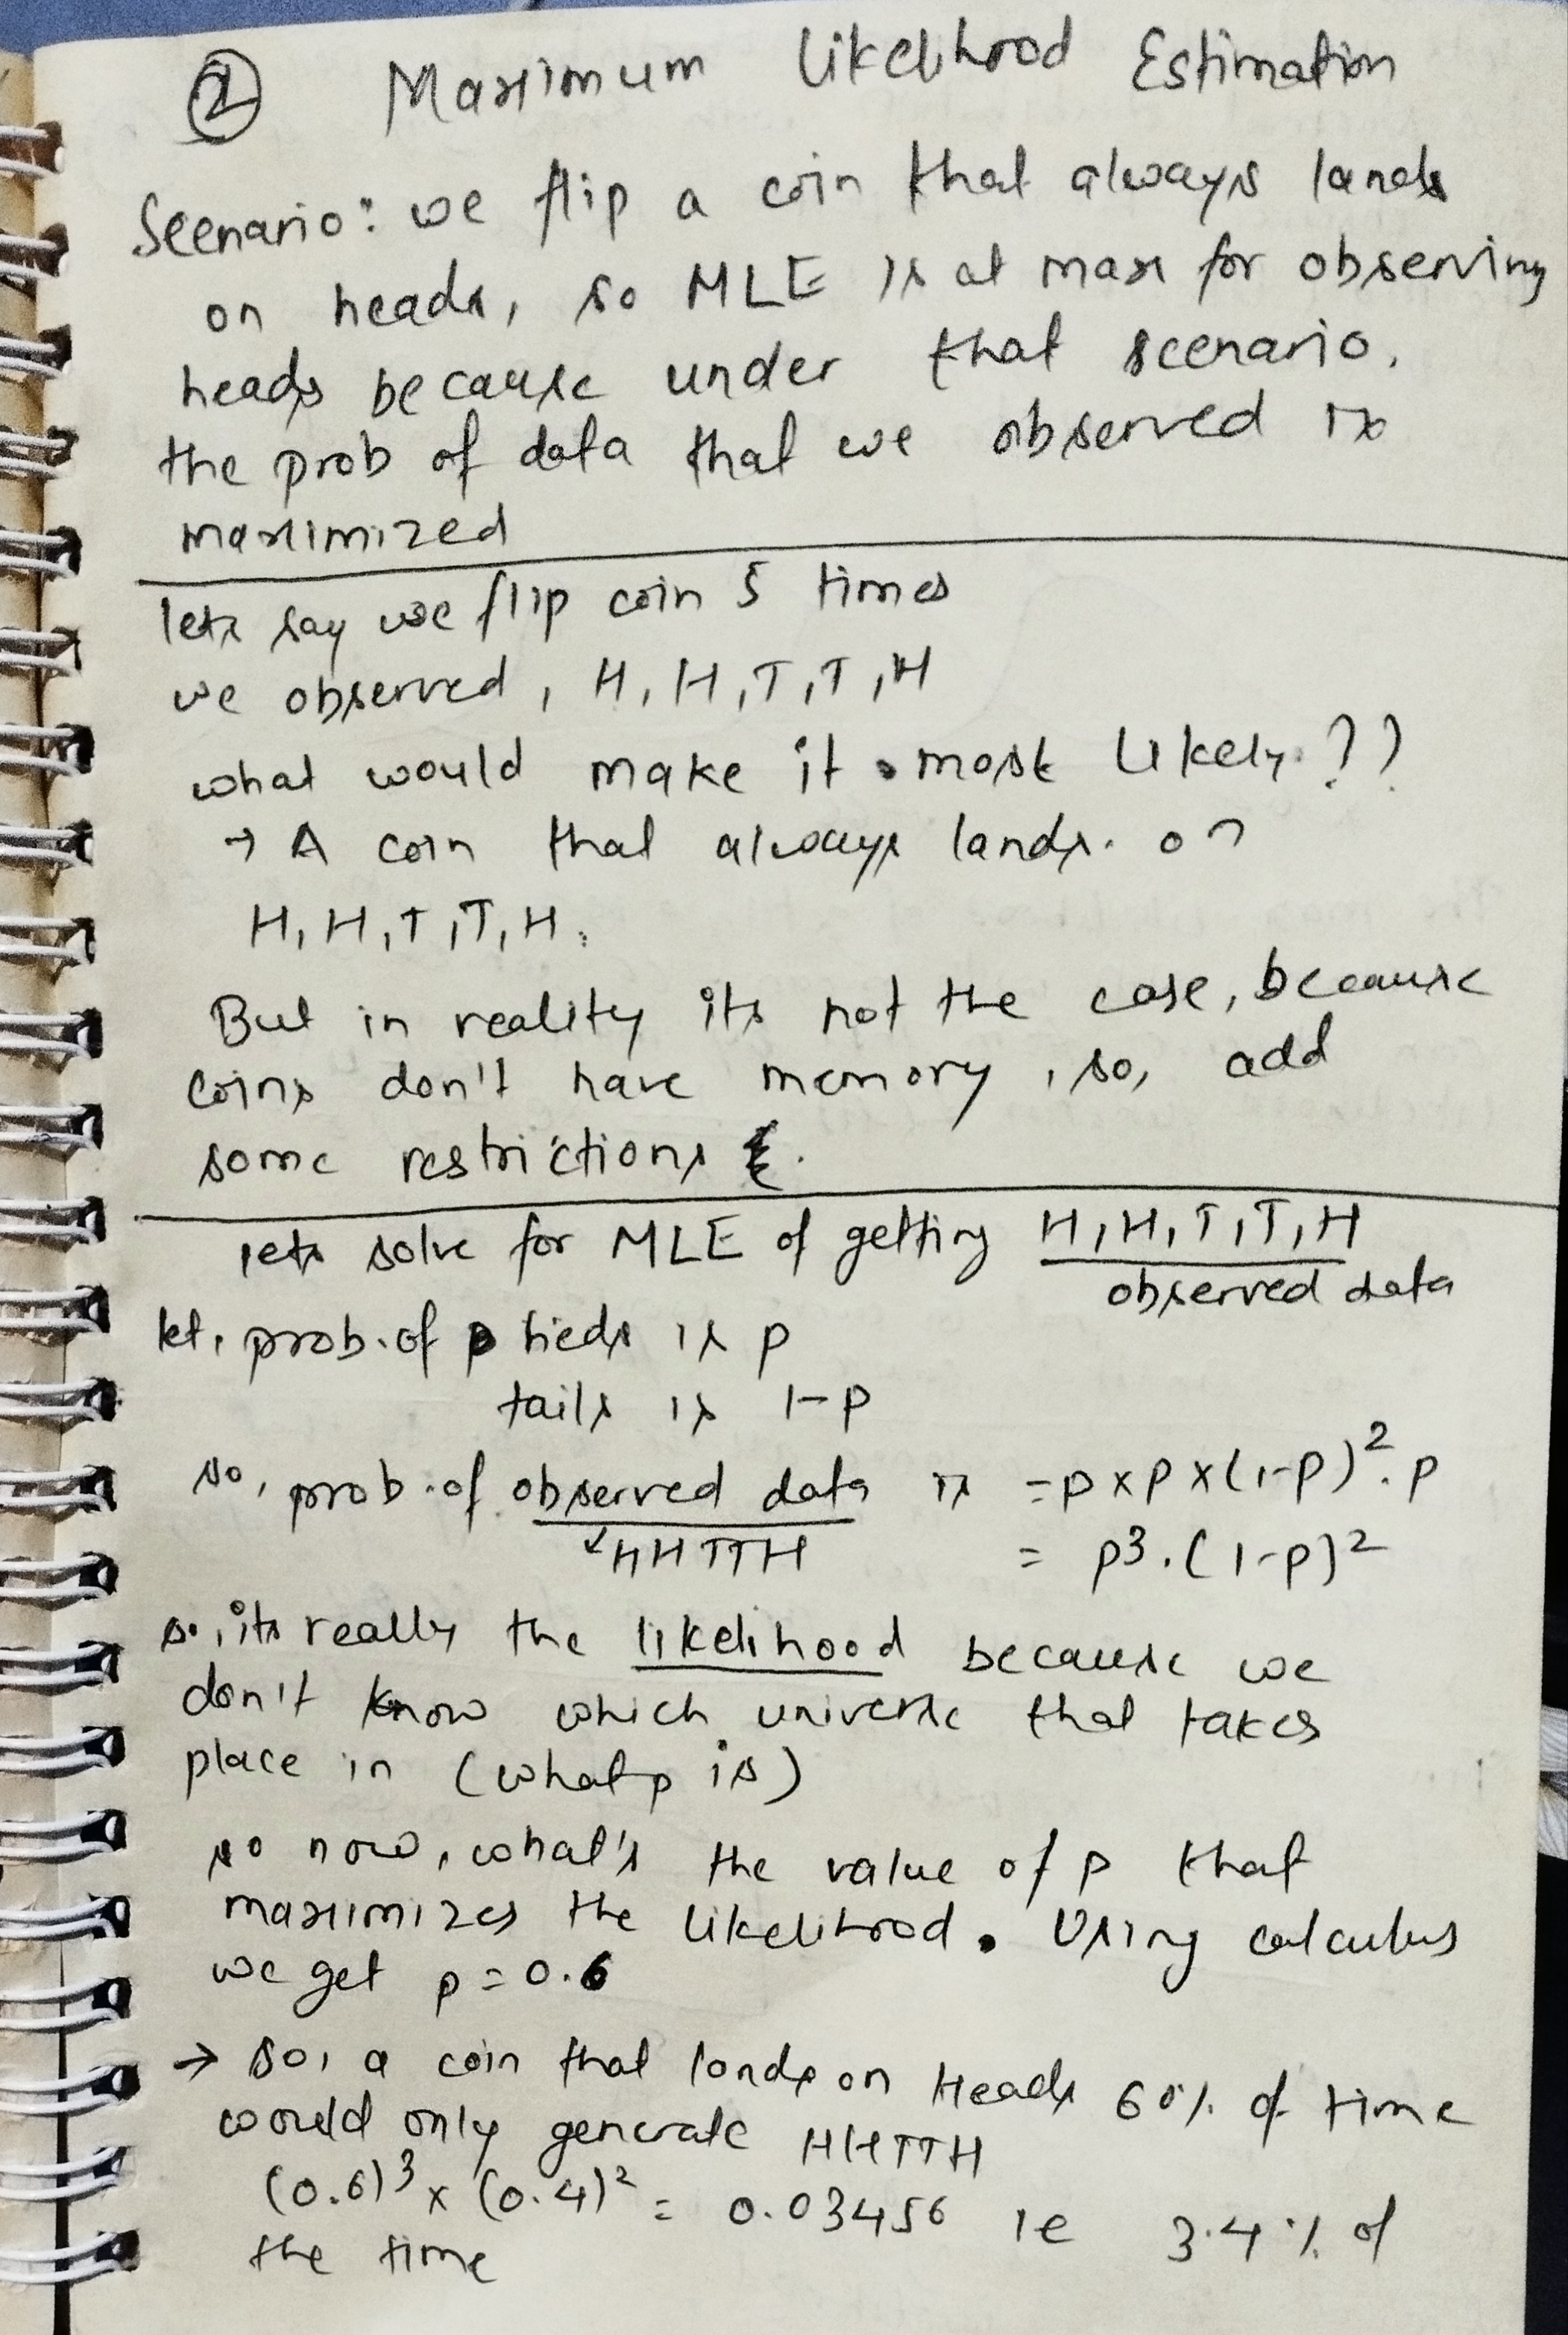 ② Maximum Likelihood Estimation
Scenario: we flip a coin that always lands
on heads, so MLE is at max for observing
heads because under that scenario,
the prob of data that we observed is
maximized
lets say we flip coin 5 times
we observed, H, H, T, T, H
what would make it most likely ??
→ A coin that always lands on
H, H, T, T, H.
But in reality its not the case, because
coins don't have memory, so, add
some restrictions
lets solve for MLE of getting H, H, T, T, H
observed data
let, prob. of heds is p
tails is 1-p
so, prob. of observed data is = p x p x (1-p)². p
HHTTH = p3. (1-p)²
so, its really the likelihood because we
don't know which universe that takes
place in (what p is)
so now, what's the value of p that
maximizes the likelihood. Using calculus
we get p = 0.6
→ So, a coin that lands on Heads 60% of time
would only generate HHTTH
(0.6)³ x (0.4)² = 0.03456 ie 3.4% of
the time